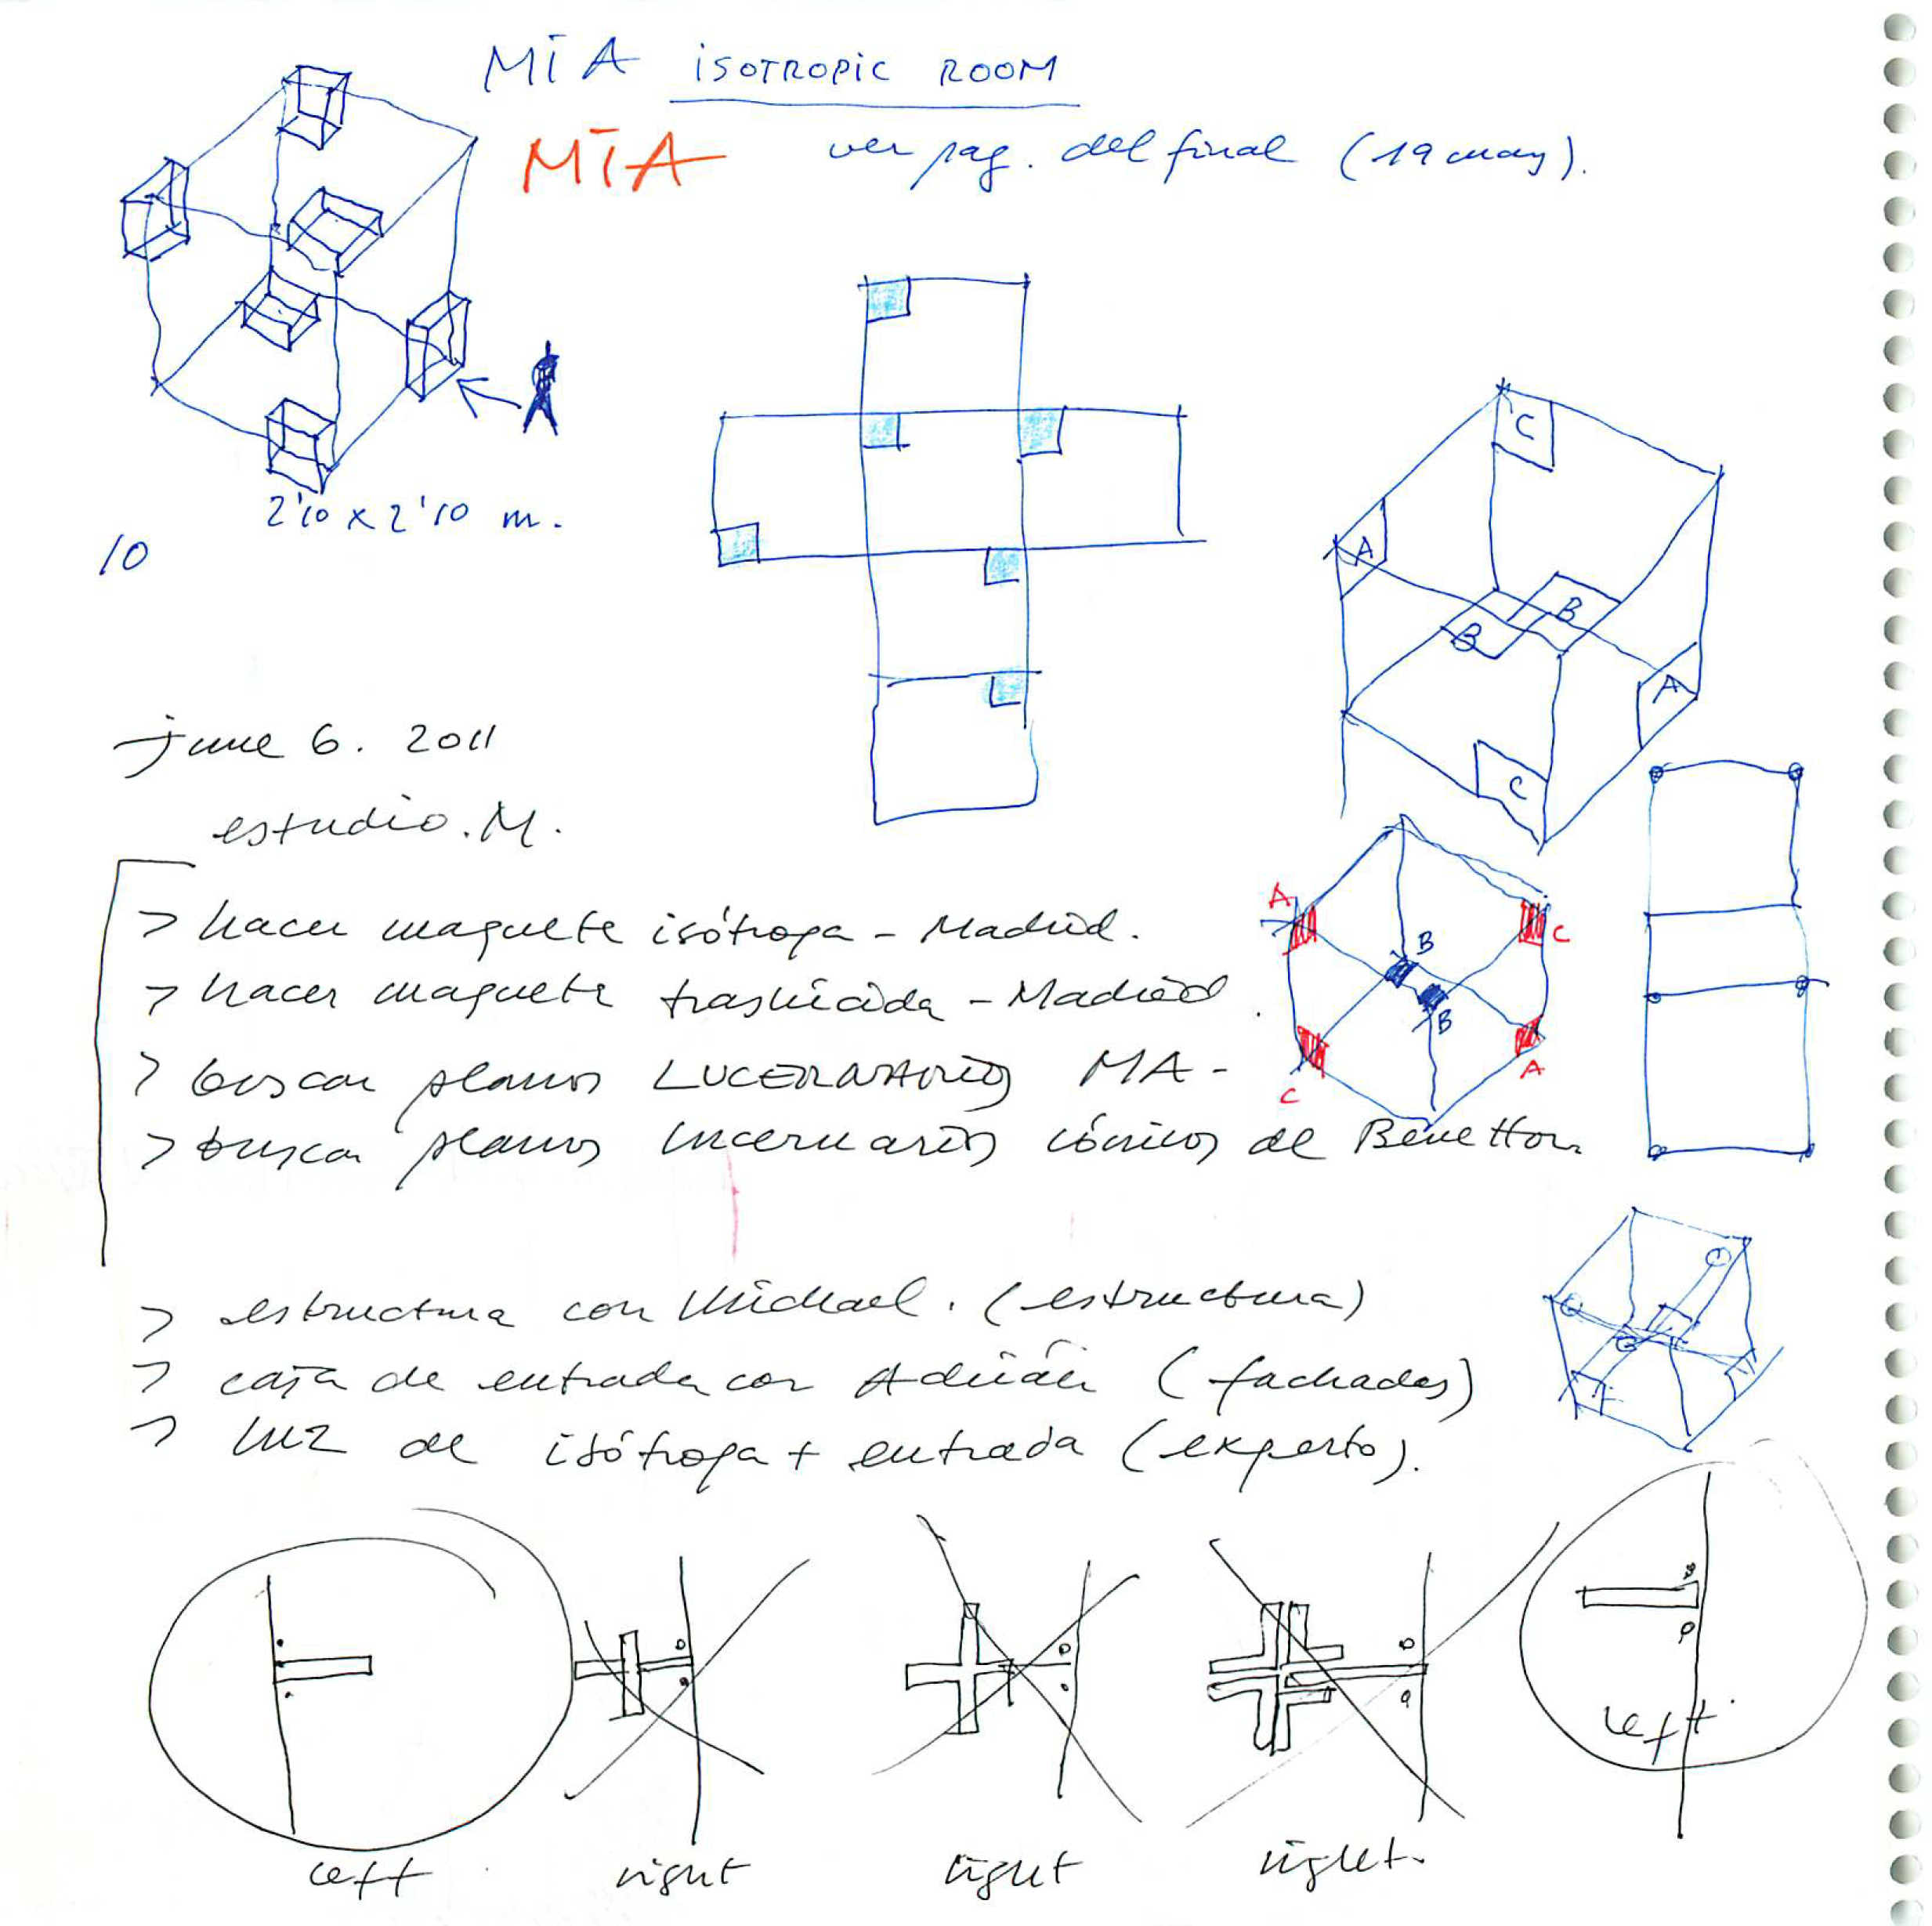 MIA ISOTROPIC ROOM
MIA ver pag. del final (19 may).
2'10 x 2'10 m.
10
C
A
B
B
A
C
june 6. 2011
estudio. M.
> hacer maquete isótropa - Madrid.
> hacer maquete traslúcida - Madrid.
> buscar planos LUCERNARIOS MA -
> buscar planos lucernarios cónicos de Benetton.
A
C
B
B
A
C
> estructura con Michael. (estructura)
> caja de entrada con Adrián (fachadas)
> luz de isótropa + entrada (experto).
left
left
right
right
right.